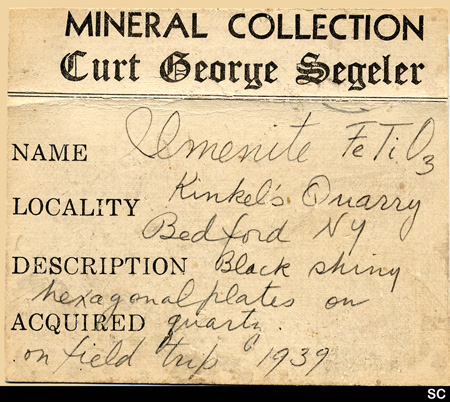 MINERAL COLLECTION
Curt George Segeler
NAME Ilmenite FeTiO3
LOCALITY Kinkel's Quarry
Bedford NY
DESCRIPTION Black shiny
hexagonal plates on
ACQUIRED quartz.
on field trip 1939
SC